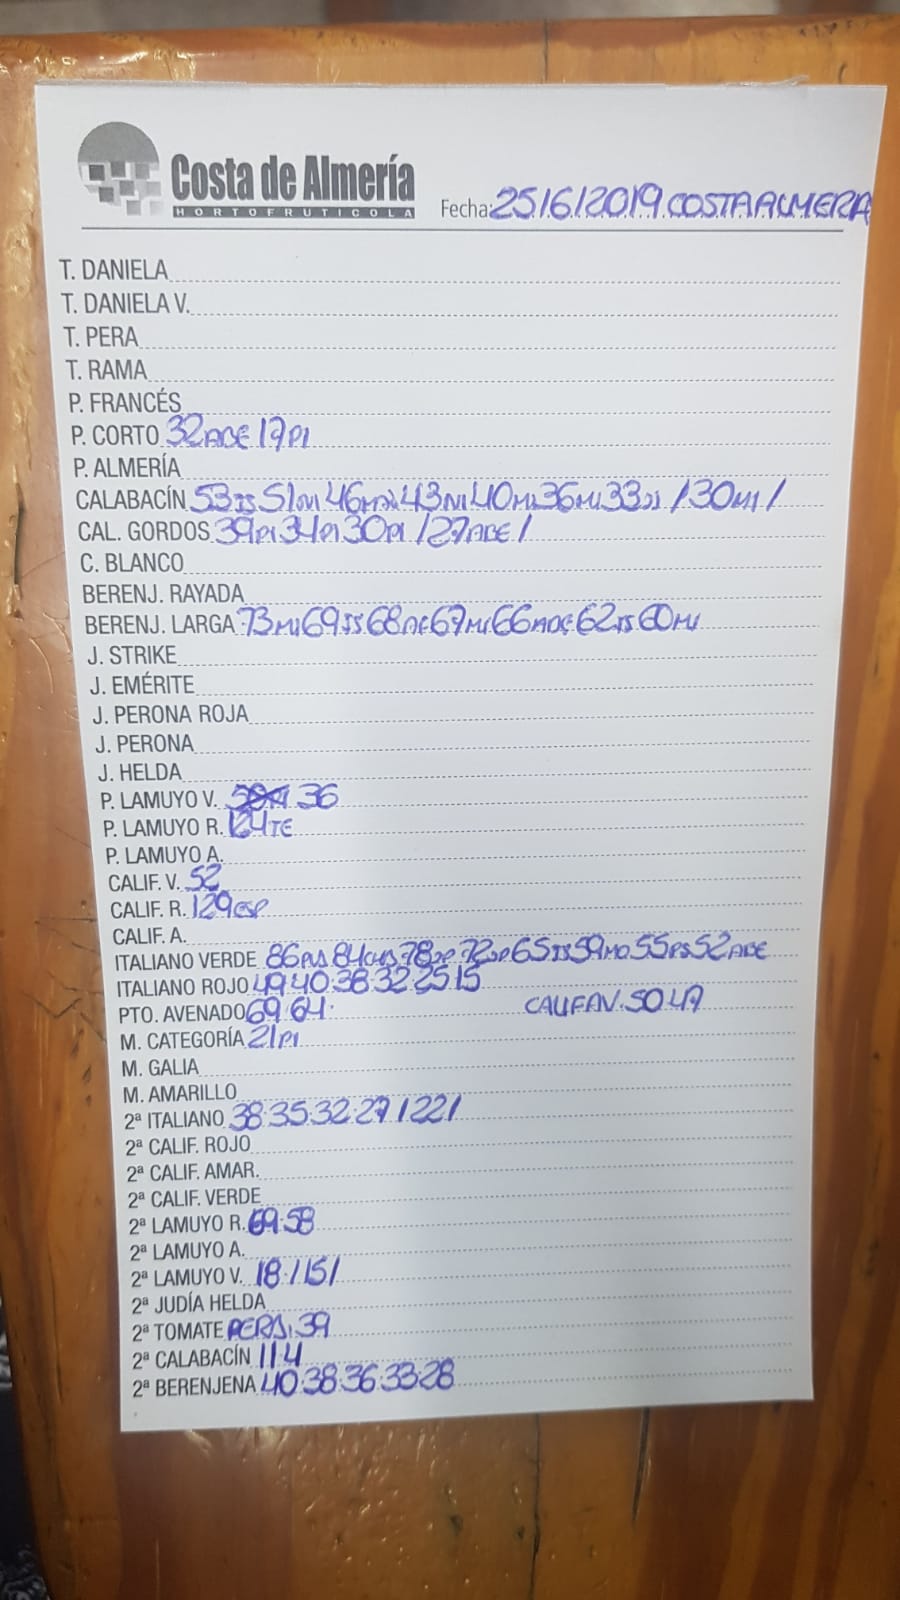 Costa de Almería
HORTOFRUTICOLA
Fecha: 25/6/2019. COSTA ALMERA
T. DANIELA
T. DANIELA V.
T. PERA
T. RAMA
P. FRANCÉS
P. CORTO 32ADE 17PI
P. ALMERÍA
CALABACÍN 53JS 51 46 43 40MU 36MU 33JJ /30MU/
CAL. GORDOS 39PI 34PI 30PI /27ADE/
C. BLANCO
BERENJ. RAYADA
BERENJ. LARGA 73MU 69JS 68AE 67MU 66ADE 62JS 60MU
J. STRIKE
J. EMÉRITE
J. PERONA ROJA
J. PERONA
J. HELDA
P. LAMUYO V. 36
P. LAMUYO R. 124TE
P. LAMUYO A.
CALIF. V. 52
CALIF. R. 129ESP
CALIF. A.
ITALIANO VERDE 86 84 78 72 65JS 59MO 55PS 52ADE
ITALIANO ROJO 49 40.38.32 25 15
PTO. AVENADO 69 64. CALIFAV. 50 47
M. CATEGORÍA 21PI
M. GALIA
M. AMARILLO
2ª ITALIANO 38.35.32.27/22/
2ª CALIF. ROJO
2ª CALIF. AMAR.
2ª CALIF. VERDE
2ª LAMUYO R. 69.58
2ª LAMUYO A.
2ª LAMUYO V. 18./15/
2ª JUDÍA HELDA
2ª TOMATE PERA. 39
2ª CALABACÍN 11 4
2ª BERENJENA 40.38.36.33.28